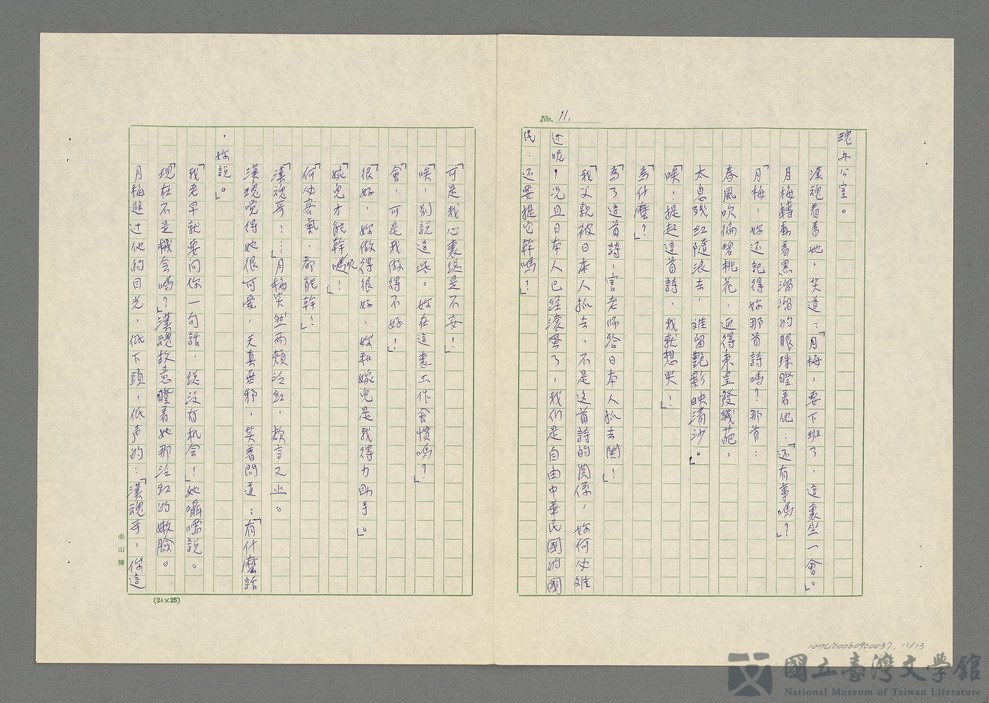 No. 11.
魂办公室。
漢魂看着她,笑道:「月梅,要下班了,這裏坐一會。」
月梅轉動着黑溜溜的眼珠瞪着他:「还有事嗎?」
「月梅,妳还記得妳那首詩嗎?那首:
春風吹徧碧桃花,近得東皇發纖葩,
太息残红隨浪去,难留艷影映清沙。」
「唉,提起這首詩,我就想哭!」
「為什麼?」
「為了這首詩,害老师給日本人抓去関!」
「我父親被日本人抓去,不是这首詩的関係,妳何必难
过呢?况且日本人已經滾蛋了,我们是自由中華民國的國
民,还要提它幹嗎!」
「可是我心裏總是不安!」
「唉,别説這些,妳在這裏工作會慣嗎?」
「會,可是我做得不好!」
「很好,妳做得很好,妳和嫁兜是我得力助手。」
「嫁兜才能幹呢!」
「何必客氣,都能幹!」
「漢魂哥!…」月梅突然兩頰泛红,欲言又止。
漢魂覺得她很可愛,天真無邪,笑着問道:「有什麼話
,妳説。」
「我老早就要问你一句話,從沒有机会!」她囁嚅説。
「現在不是機会嗎?」漢魂故意瞪着她那泛红的嫩臉。
月梅避过他的目光,低下頭,低声的:「漢魂哥,你這
金山牌
(24×25)
NMTL20060900037, 11/13
國立臺灣文學館
National Museum of Taiwan Literature